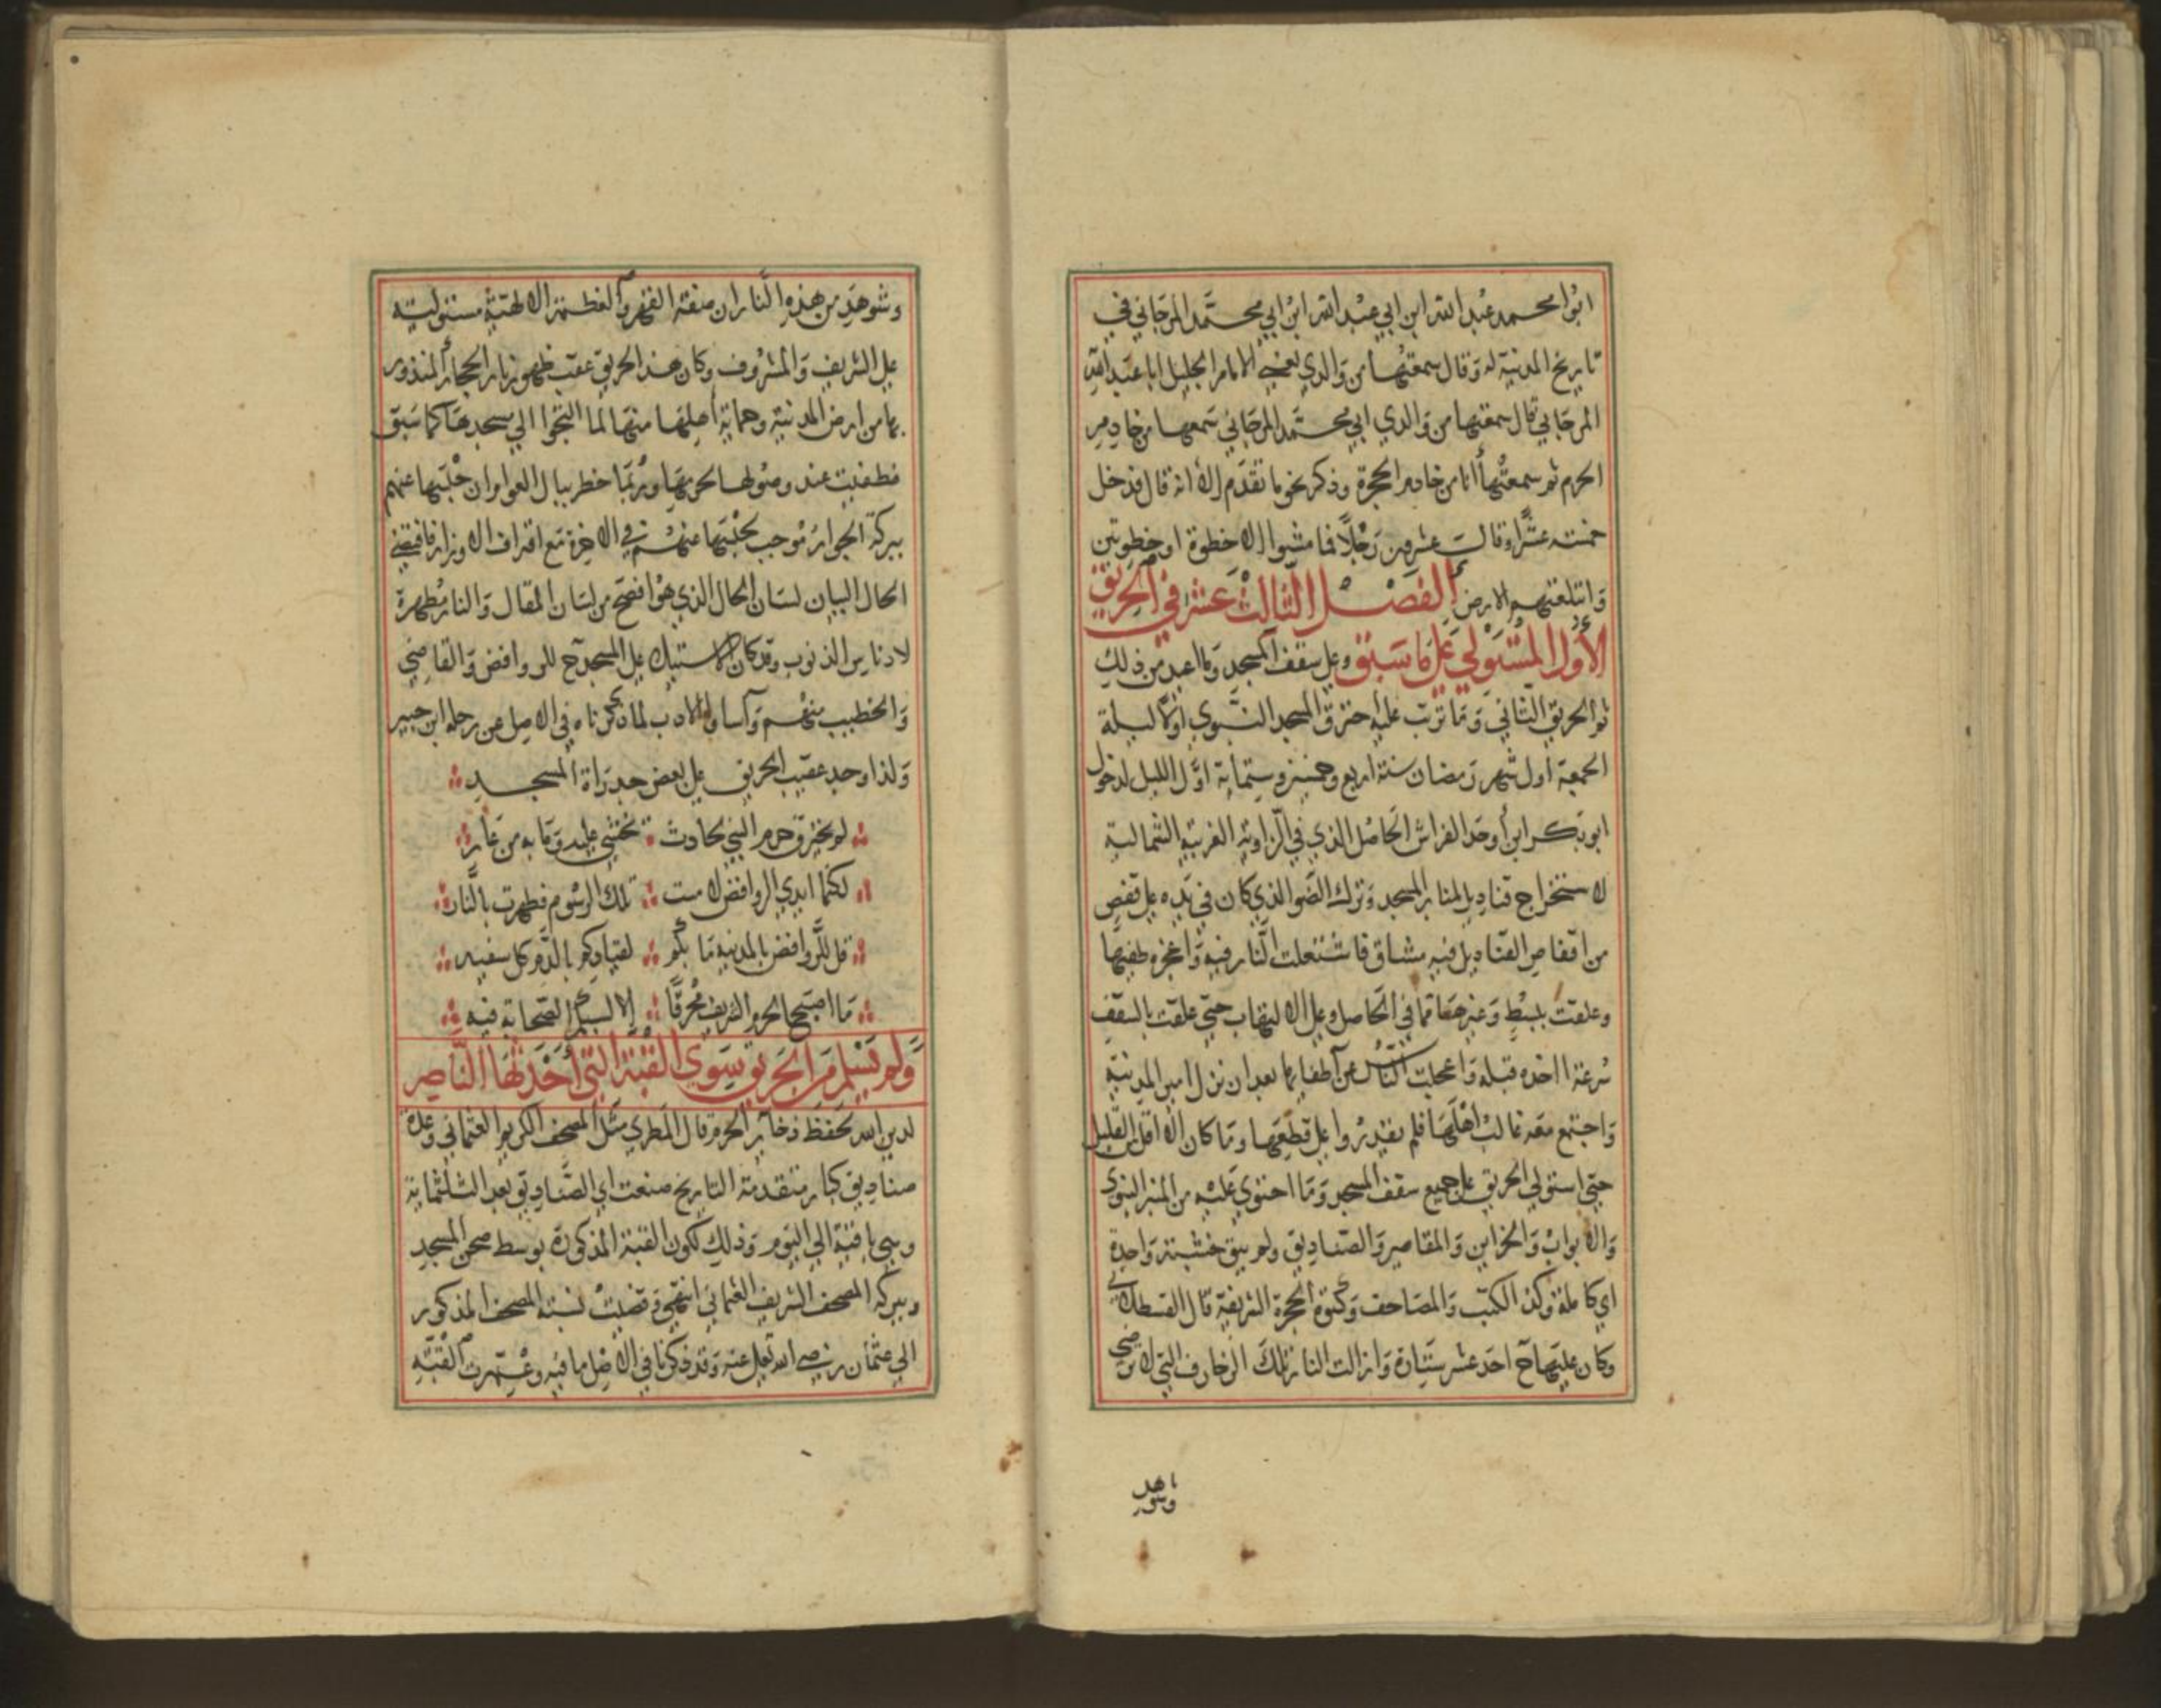 ابو محمد عبد الله ابن ابي عبد الله ابن ابي محمد المرجاني في
تاريخ المدينة له وقال سمعتها من والدي يعني الامام الجليل ابا عبد الله
المرجاني قال سمعتها من والدي ابي محمد المرجاني سمعها من خادم
الحرم ثم سمعتها انا من خادم الحجرة وذكر نحو ما تقدم الا انه قال فدخل
خمسة عشر او قال عشرون رجلا فما مشوا الا خطوة او خطوتين
وابتلعتهم الارض الفصل الثالث عشر في الحريق
الاول المستولي على ما سبق وعلى سقف المسجد وما اعيد من ذلك
ثم الحريق الثاني وما ترتب عليه احترق المسجد النبوي اولا ليلة
الجمعة اول شهر رمضان سنة اربع وخمسين وستماية اول الليل لدخول
ابو بكر ابن أوحد الفراش الحاصل الذي في الزاوية الغربية الشمالية
لاستخراج قناديل لمناير المسجد وترك الضو الذي كان في يده على قفص
من اقفاص القناديل فيه مشاق فاشتعلت النار فيه واعجزه طفيها
وعلقت ببسط وغيرها مما في الحاصل وعلى الالتهاب حتى علقت بالسقف
سرعة اخذه قبله واعجلت الناس عن اطفايها بعد ان نزل امير المدينة
واجتمع معه غالب اهلها فلم يقدروا على قطعها وما كان الا اقل القليل
حتى استولى الحريق على جميع سقف المسجد وما احتوى عليه من المنبر النبوى
والابواب والخزاين والمقاصير والصناديق ولم يبق خشبة واحدة
اي كاملة وكذا الكتب والمصاحف وكسوة الحجرة الشريفة قال القسطلاني
وكان عليها ح احد عشر ستارة وازالت النار تلك الزخارف التي لا ترضي
وشوهد
وشوهد من هذه النار ان صفة القهر والعظمة الالهية مستولية
على الشريف والمشروف وكان هذا الحريق عقب ظهور نار الحجاز المنذور
بها من ارض المدينة وحماية اهلها منها لما التجوا الى مسجدها كما سبق
فطفيت عند وصولها لحرمها وربما خطر ببال العوام ان حبسها عنهم
ببركة الجوار موجب لحبسها عنهم في الاخرة مع اقتراف الاوزار فاقتضى
الحال البيان لسان الحال الذي هو افصح من لسان المقال والنار مطهرة
لادناس الذنوب وقد كان الاستيلا على المسجد ح للروافض والقاضي
والخطيب منهم وآساوا الادب لما ذكرناه في الاصل عن رحلة ابن جبير
ولذا وجد عقيب الحريق على بعض جدراة المسجد
لم يحترق حرم النبي لحادث يخشى عليه وما به من عار
لكنما ايدي الروافض لامست تلك الرسوم فطهرت بالنار
قل للروافض بالمدينة ما بكم لقيادكم بالذم كل سفيه
ما اصبح الحرم الشريف محرقا الا لسبكم الصحابة فيه
ولم يسلم من الحريق سوى القبة التي أحدثها الناصر
لدين الله لحفظ ذخاير الحرم قال المطري مثل المصحف الكريم العثماني وعدة
صناديق كبار متقدمة التاريخ صنعت اي الصناديق بعد الثلثماية
وهي باقية الى اليوم وذلك لكون القبة المذكورة بوسط صحن المسجد
وببركة المصحف الشريف العثماني انتهى وقضيت نسبة المصحف المذكور
الى عثمان رضي الله تعالى عنه وقد ذكرنا في الاصل ما فيه وعمرت القبة